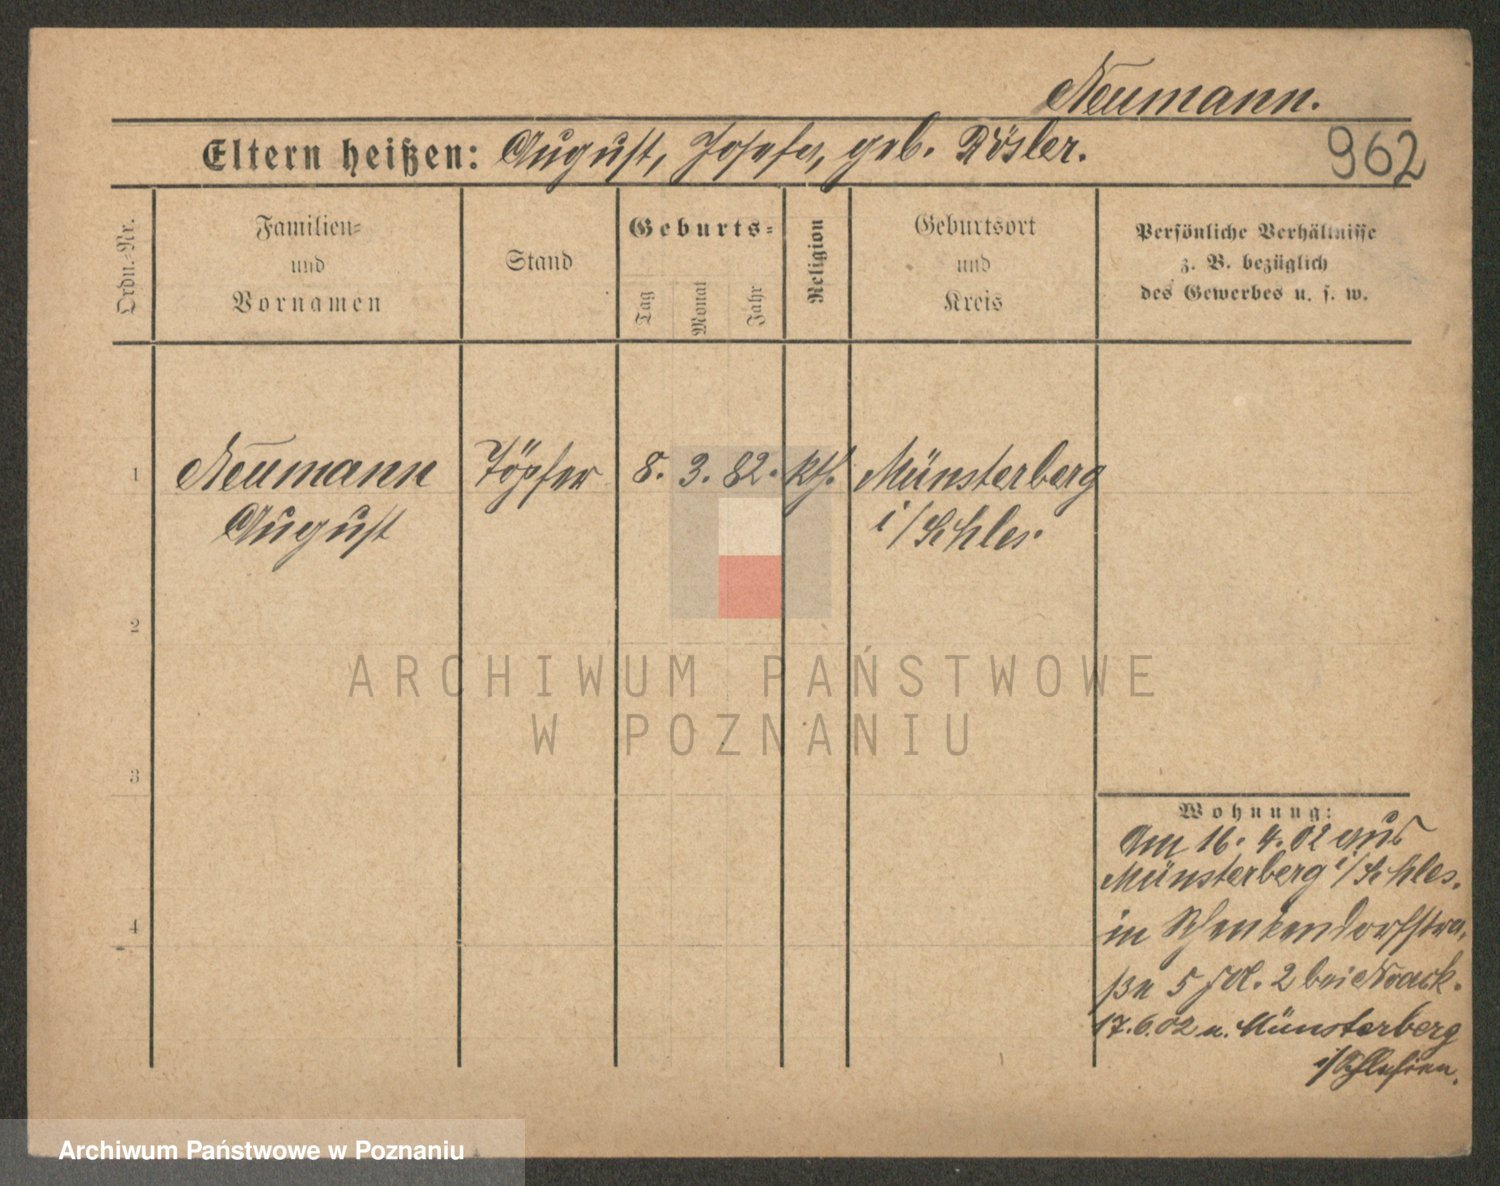 Neumann.
Eltern heißen: August, Josefa, geb. Rösler.
962
Ordn.-Nr.
Familien-
und
Vornamen
Stand
Geburts-
Tag
Monat
Jahr
Religion
Geburtsort
und
Kreis
Persönliche Verhältnisse
z. B. bezüglich
des Gewerbes u. s. w.
1
Neumann Töpfer 8. 3. 82. kth. Münsterberg
August i/Schles.
2
3
4
Wohnung:
Am 16. 4. 02 aus
Münsterberg i/Schles.
in Schenkendorfstra,
ße 5 II. 2 bei Noack.
17.6.02 n. Münsterberg
i/Schlesien.
ARCHIWUM PAŃSTWOWE
W POZNANIU
Archiwum Państwowe w Poznaniu